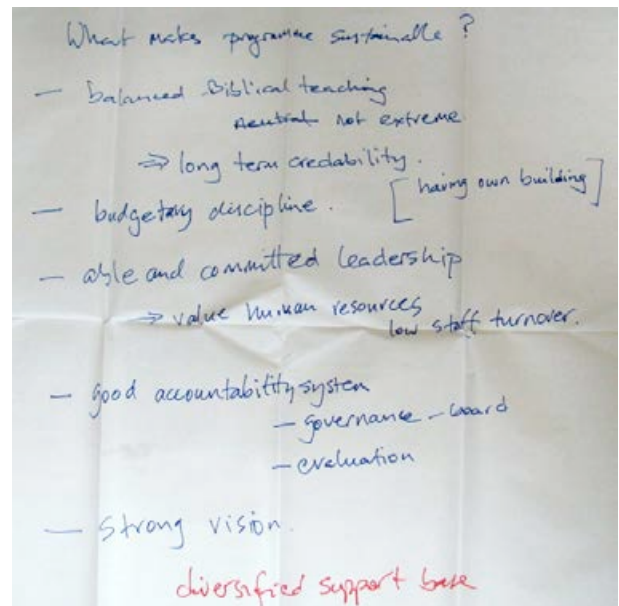 What makes programme sustainable ?
— balanced Biblical teaching
neutral not extreme
⇒ long term credability .
[having own building]
— budgetary discipline .
— able and committed leadership
⇒ value human resources
low staff turnover.
— good accountability system
— governance – board
— evaluation
— strong vision.
diversified support base